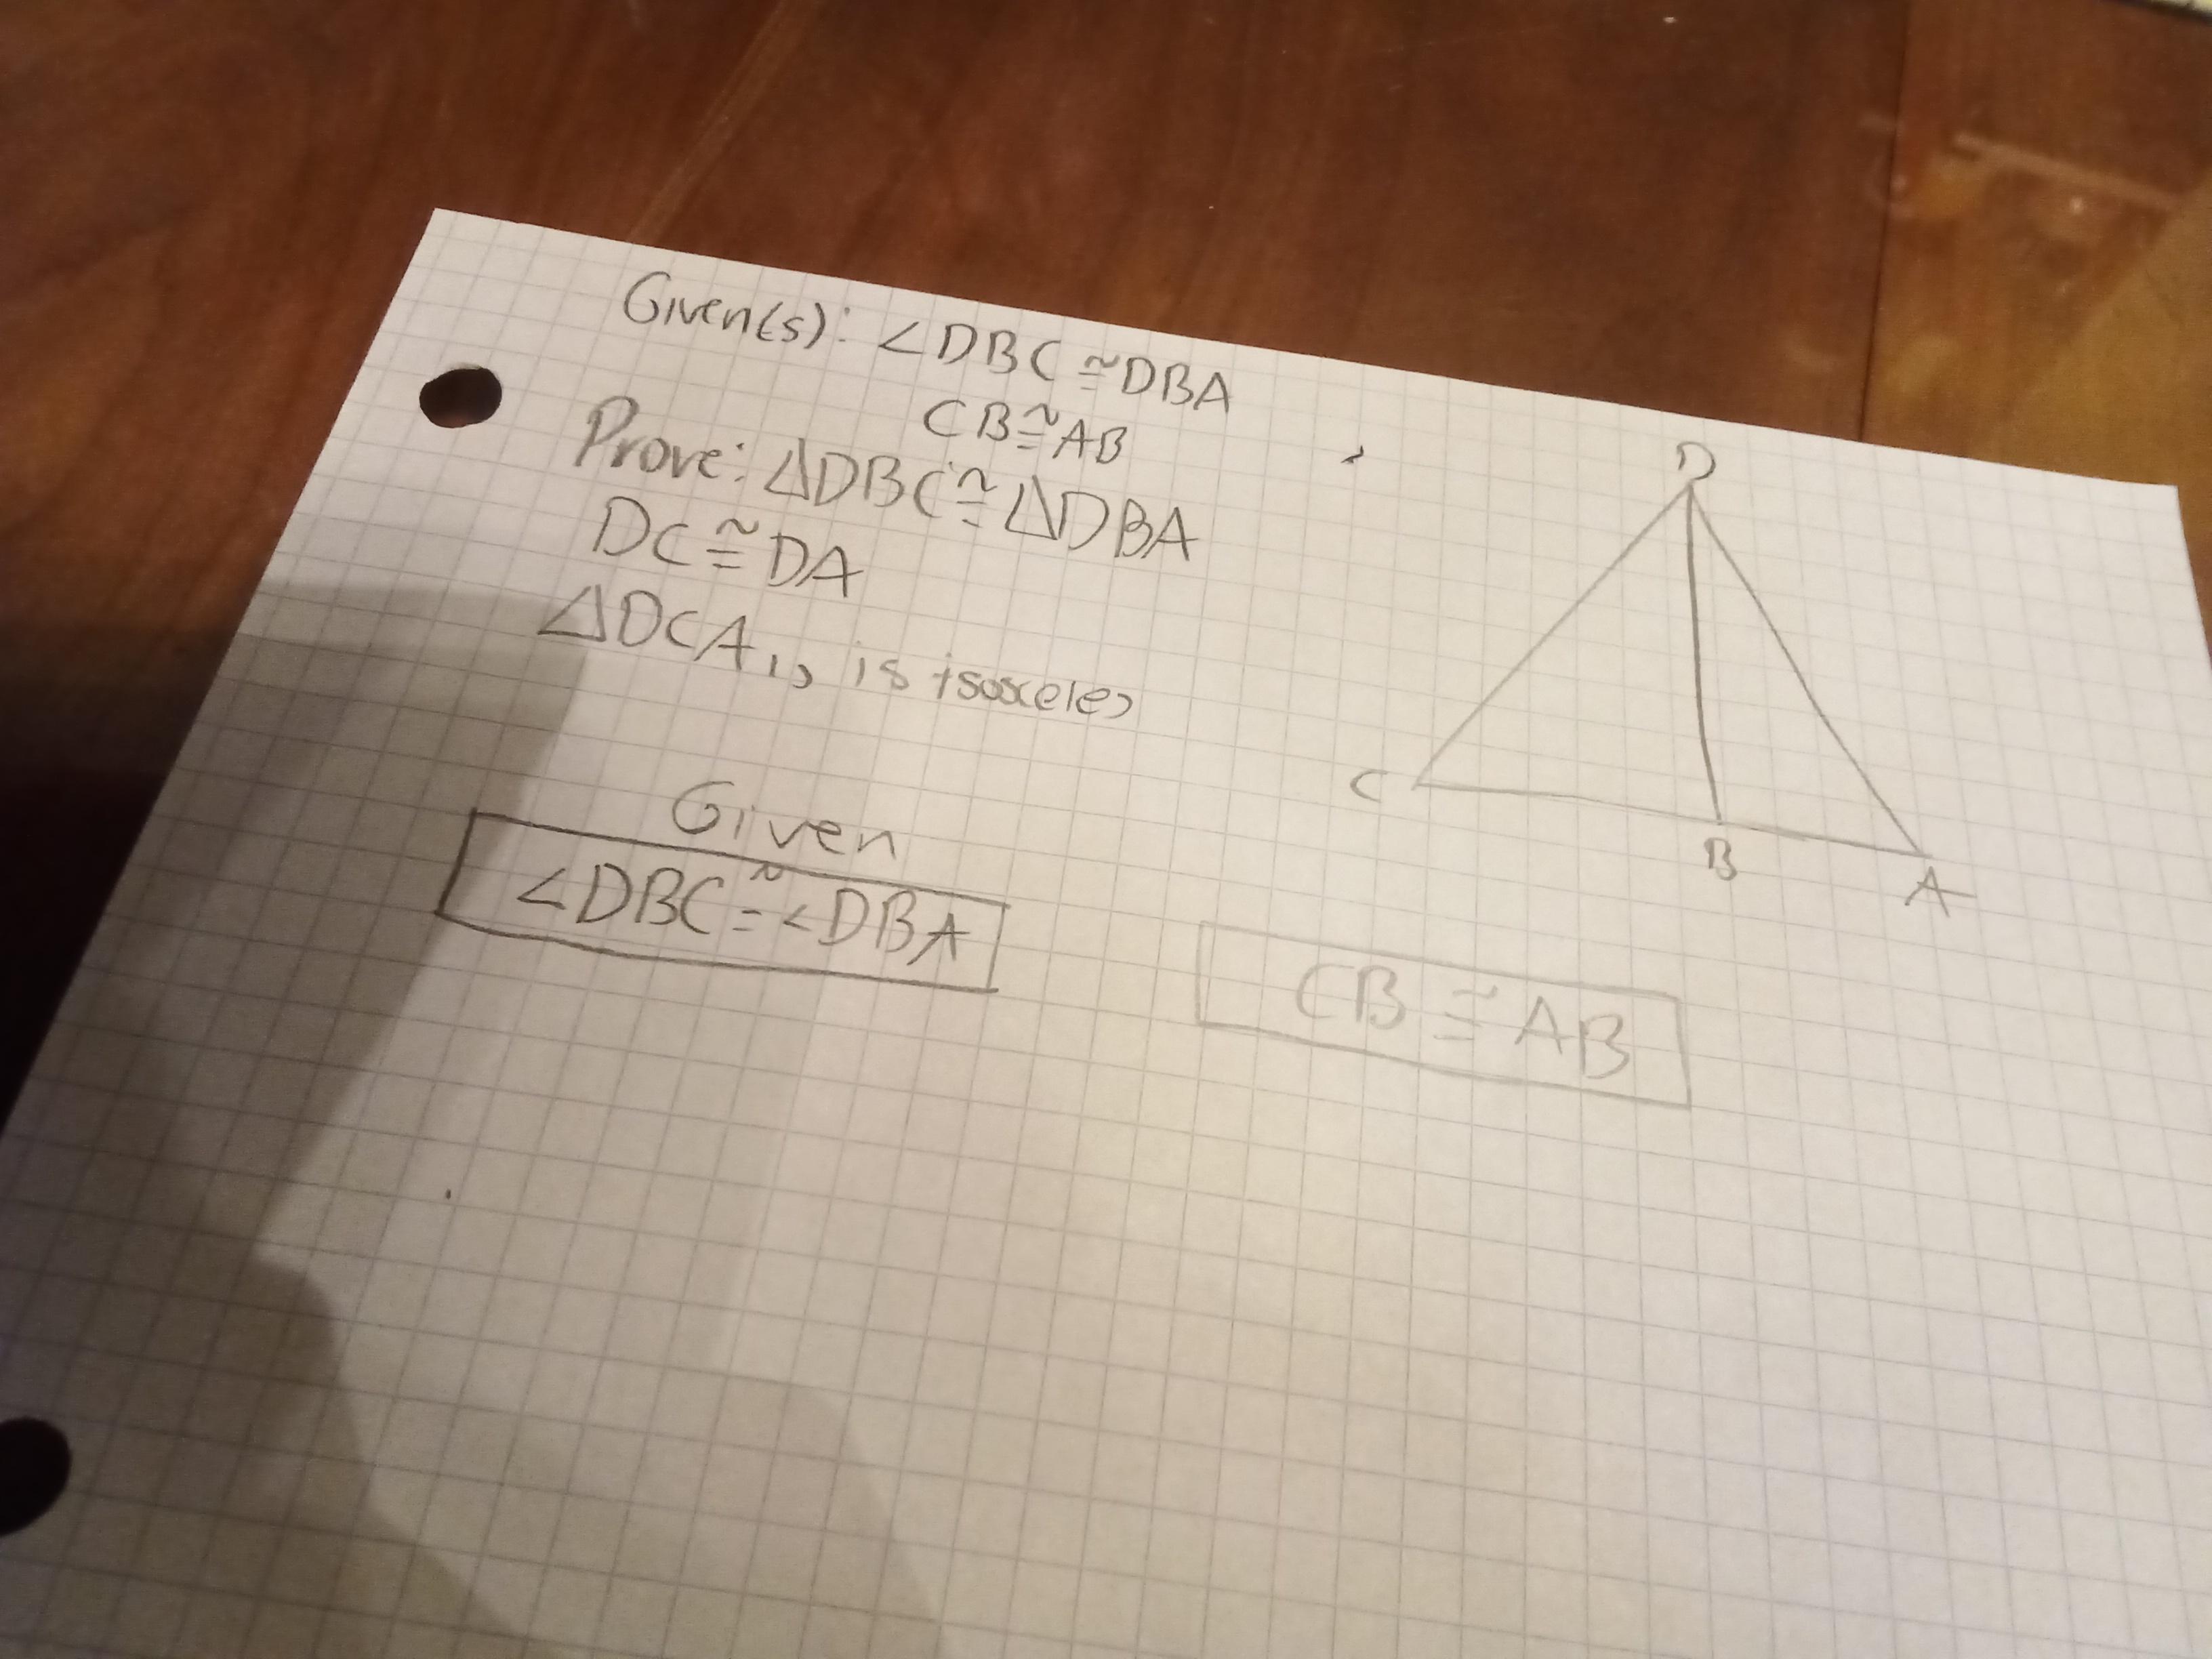 Given(s): ∠DBC ≅ DBA
CB ≅ AB
Prove: △DBC ≅ △DBA
DC ≅ DA
△DCA,, is isosceles
D
C
B
A
Given
∠DBC ≅ ∠DBA
CB ≅ AB